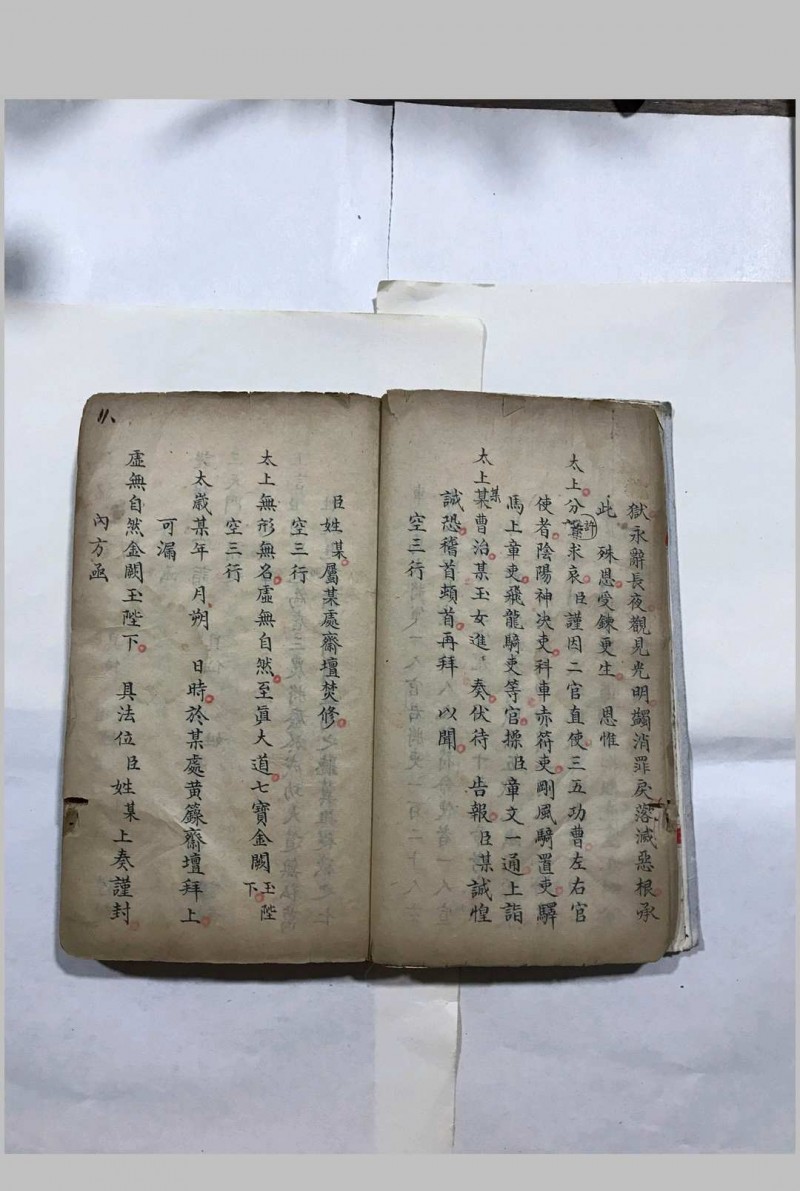 獄永辭長夜觀見光明蠲消罪戾落滅惡根承
此 殊恩受鍊更生 恩惟
太上分許求哀臣謹因二官直使三五功曹左右官
使者陰陽神決吏科車赤符吏剛風騎置吏驛
馬上章吏飛龍騎吏等官操臣章文一通上詣
太上某曹治某玉女進 奏伏待 告報臣某誠惶
誠恐稽首頓首再拜 以聞
空三行
臣姓某屬某處齋壇焚修
空三行
太上無形無名虛無自然至真大道七寶金闕玉陛下
空三行
太歲某年 月朔 日時於某處黃籙齋壇拜上
可漏
虛無自然金闕玉陛下 具法位臣姓某上奏謹封
內方函